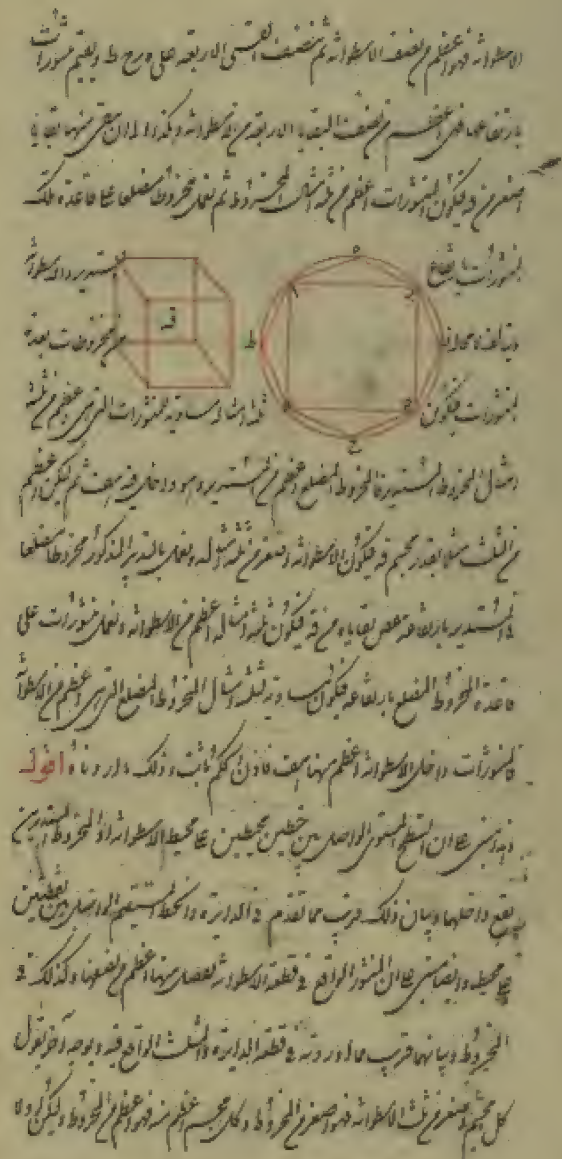 الاسطوانة فهو اعظم من نصف الاسطوانة ثم ننصف القسى الاربعة على ه ر ح ط ونقيم منشورات
بارتفاعها فهى اعظم من نصف البقايا الاربعة من الاسطوانة وهكذا الى ان يبقى منها بقايا
اصغر من فه فيكون المنشورات اعظم من ثلثة امثال المخروط ثم نعمل مخروطا مضلعا على قاعدة تلك
المنشورات بارتفاع المستدير والاسطوانة
من مخروطات بعدة
المنشورات فيكون ثلثة امثاله مساوية للمنشورات التى هى اعظم من ثلثة
امثال المخروط المستدير فالمخروط المضلع اعظم من المستدير وهو داخل فيه هف ثم ليكن اعظم
من الثلث مثلا بقدر مجسم فه فيكون الاسطوانة اصغر من ثلثة امثاله ونعمل بالتدبير المذكور مخروطا مضلعا
فى المستدير بارتفاعه ينقص بقاياه من فه فيكون ثلثة امثاله اعظم من الاسطوانة ونعمل منشورات على
قاعدة المخروط المضلع بارتفاعه فيكون مساوية لثلثة امثال المخروط المضلع التى هى اعظم من الاسطوانة
فالمنشورات داخل الاسطوانة اعظم منها هف فاذن الحكم ثابت وذلك ما اردناه اقول
وهذا مبنى على ان السطح المستوى الواصل بين خطين محيطين على محيط الاسطوانة او المخروط المستديرين
يقع داخلها وبيان ذلك قريب مما تقدم فى الدايرة والخط المستقيم الواصل بين نقطتين
على محيطه وايضا مبنى على ان المنشور الواقع فى قطعة الاسطوانة يفصل منها اعظم من نصفها وكذلك فى
المخروط وبيانهما قريب مما اوردته فى قطعة الدايرة والمثلث الواقع فيه وبوجه آخر نقول
كل مجسم اصغر من ثلث الاسطوانة فهو اصغر من المخروط وكل مجسم اعظم منه فهو اعظم من المخروط وليكن اولا